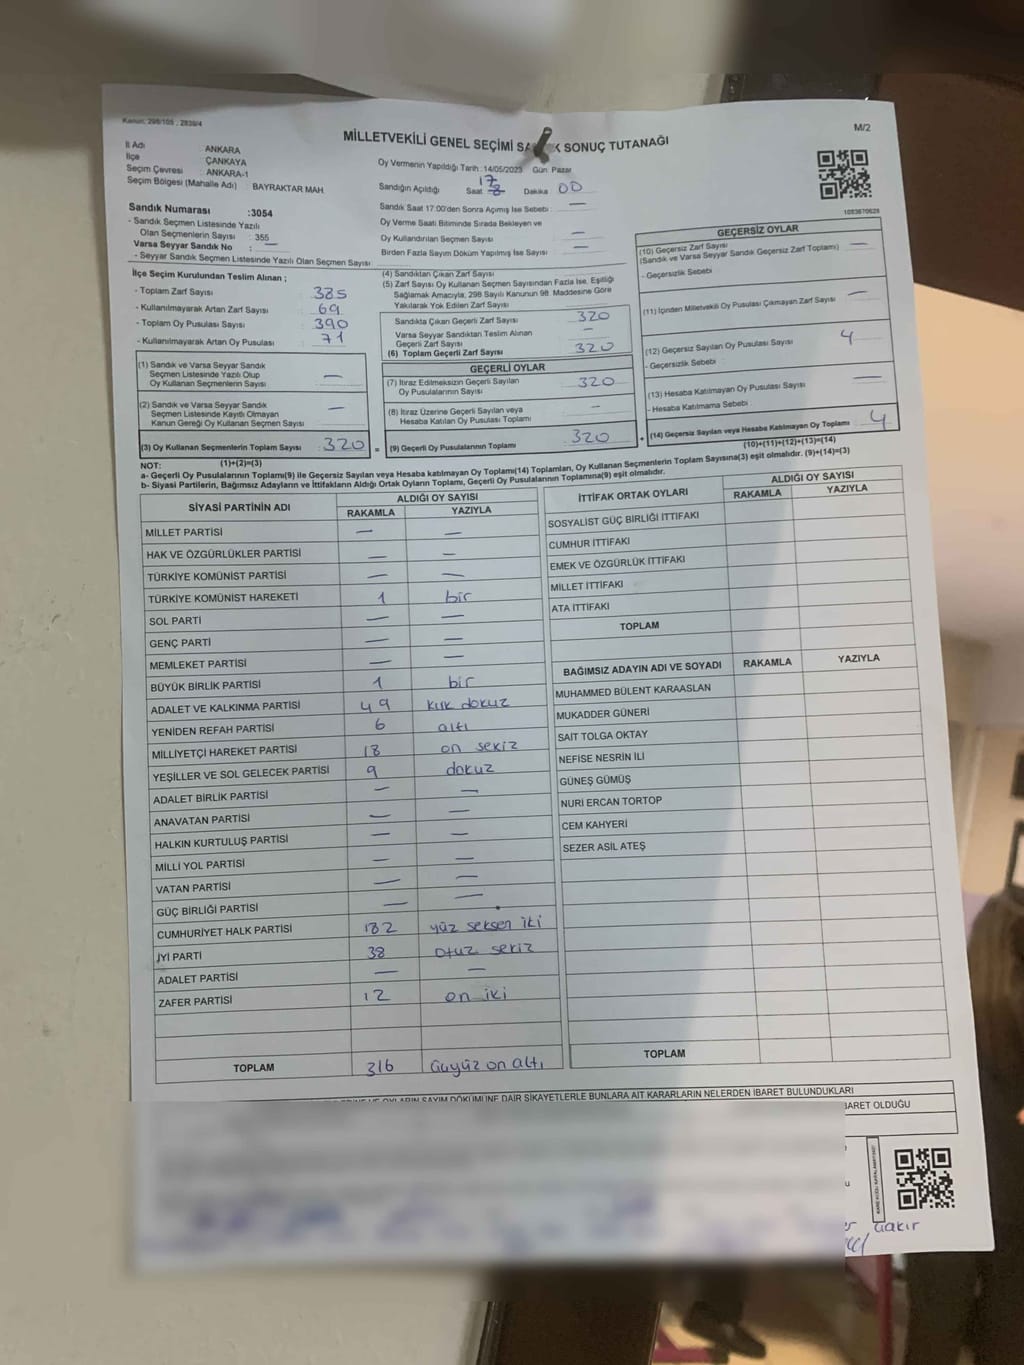 Kanun: 298/105 , 2839/4
M/2
MİLLETVEKİLİ GENEL SEÇİMİ SONUÇ TUTANAĞI
İl Adı : ANKARA
İlçe : ÇANKAYA
Seçim Çevresi : ANKARA-1
Seçim Bölgesi (Mahalle Adı) : BAYRAKTAR MAH.
Oy Vermenin Yapıldığı Tarih :14/05/2023 Gün: Pazar
Sandığın Açıldığı Saat 17 Dakika 00
Sandık Saat 17:00'den Sonra Açımış İse Sebebi : —
Oy Verme Saati Bitiminde Sırada Bekleyen ve
Oy Kullandırılan Seçmen Sayısı —
Birden Fazla Sayım Döküm Yapılmış İse Sayısı —
Sandık Numarası :3054
- Sandık Seçmen Listesinde Yazılı
Olan Seçmenlerin Sayısı : 355
Varsa Seyyar Sandık No : —
- Seyyar Sandık Seçmen Listesinde Yazılı Olan Seçmen Sayısı
İlçe Seçim Kurulundan Teslim Alınan ;
- Toplam Zarf Sayısı 385
- Kullanılmayarak Artan Zarf Sayısı 69
- Toplam Oy Pusulası Sayısı 390
- Kullanılmayarak Artan Oy Pusulası 71
(1) Sandık ve Varsa Seyyar Sandık
Seçmen Listesinde Yazılı Olup
Oy Kullanan Seçmenlerin Sayısı —
(2) Sandık ve Varsa Seyyar Sandık
Seçmen Listesinde Kayıtlı Olmayan
Kanun Gereği Oy Kullanan Seçmen Sayısı —
(3) Oy Kullanan Seçmenlerin Toplam Sayısı : 320
(1)+(2)=(3)
(4) Sandıktan Çıkan Zarf Sayısı
(5) Zarf Sayısı Oy Kullanan Seçmen Sayısından Fazla İse, Eşitliği
Sağlamak Amacıyla, 298 Sayılı Kanunun 98. Maddesine Göre
Yakılarak Yok Edilen Zarf Sayısı
Sandıkta Çıkan Geçerli Zarf Sayısı 320
Varsa Seyyar Sandıktan Teslim Alınan
Geçerli Zarf Sayısı —
(6) Toplam Geçerli Zarf Sayısı 320
GEÇERLİ OYLAR
(7) İtiraz Edilmeksizin Geçerli Sayılan
Oy Pusulalarının Sayısı 320
(8) İtiraz Üzerine Geçerli Sayılan veya
Hesaba Katılan Oy Pusulası Toplamı —
= (9) Geçerli Oy Pusulalarının Toplamı 320 +
1083870628
GEÇERSİZ OYLAR
(10) Geçersiz Zarf Sayısı
(Sandık ve Varsa Seyyar Sandık Geçersiz Zarf Toplamı) —
- Geçersizlik Sebebi
(11) İçinden Milletvekili Oy Pusulası Çıkmayan Zarf Sayısı —
(12) Geçersiz Sayılan Oy Pusulası Sayısı 4
- Geçersizlik Sebebi :
(13) Hesaba Katılmayan Oy Pusulası Sayısı —
- Hesaba Katılmama Sebebi :
(14) Geçersiz Sayılan veya Hesaba Katılmayan Oy Toplamı 4
(10)+(11)+(12)+(13)=(14)
NOT:
a- Geçerli Oy Pusulalarının Toplamı(9) ile Geçersiz Sayılan veya Hesaba katılmayan Oy Toplamı(14) Toplamları, Oy Kullanan Seçmenlerin Toplam Sayısına(3) eşit olmalıdır. (9)+(14)=(3)
b- Siyasi Partilerin, Bağımsız Adayların ve İttifakların Aldığı Ortak Oyların Toplamı, Geçerli Oy Pusulalarının Toplamına(9) eşit olmalıdır.
SİYASİ PARTİNİN ADI ALDIĞI OY SAYISI
RAKAMLA YAZIYLA
MİLLET PARTİSİ — —
HAK VE ÖZGÜRLÜKLER PARTİSİ — —
TÜRKİYE KOMÜNİST PARTİSİ — —
TÜRKİYE KOMÜNİST HAREKETİ 1 bir
SOL PARTİ — —
GENÇ PARTİ — —
MEMLEKET PARTİSİ — —
BÜYÜK BİRLİK PARTİSİ 1 bir
ADALET VE KALKINMA PARTİSİ 49 kırk dokuz
YENİDEN REFAH PARTİSİ 6 altı
MİLLİYETÇİ HAREKET PARTİSİ 18 on sekiz
YEŞİLLER VE SOL GELECEK PARTİSİ 9 dokuz
ADALET BİRLİK PARTİSİ — —
ANAVATAN PARTİSİ — —
HALKIN KURTULUŞ PARTİSİ — —
MİLLİ YOL PARTİSİ — —
VATAN PARTİSİ — —
GÜÇ BİRLİĞİ PARTİSİ — —
CUMHURİYET HALK PARTİSİ 182 yüz seksen iki
İYİ PARTİ 38 otuz sekiz
ADALET PARTİSİ — —
ZAFER PARTİSİ 12 on iki
TOPLAM 316 üçyüz on altı
İTTİFAK ORTAK OYLARI ALDIĞI OY SAYISI
RAKAMLA YAZIYLA
SOSYALİST GÜÇ BİRLİĞİ İTTİFAKI
CUMHUR İTTİFAKI
EMEK VE ÖZGÜRLÜK İTTİFAKI
MİLLET İTTİFAKI
ATA İTTİFAKI
TOPLAM
BAĞIMSIZ ADAYIN ADI VE SOYADI RAKAMLA YAZIYLA
MUHAMMED BÜLENT KARAASLAN
MUKADDER GÜNERİ
SAİT TOLGA OKTAY
NEFİSE NESRİN İLİ
GÜNEŞ GÜMÜŞ
NURİ ERCAN TORTOP
CEM KAHYERİ
SEZER ASİL ATEŞ
TOPLAM
OYLARIN SAYIM DÖKÜMÜNE DAİR ŞİKAYETLERLE BUNLARA AİT KARARLARIN NELERDEN İBARET BULUNDUKLARI
İBARET OLDUĞU